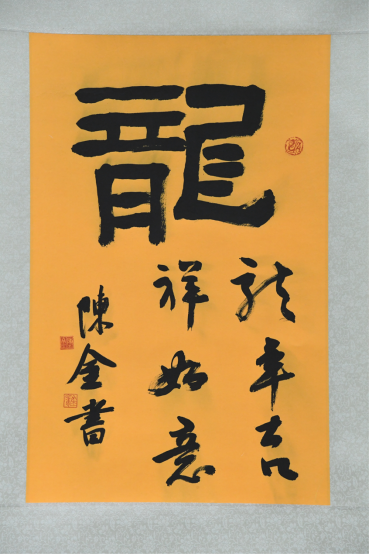 龍
龙年吉
祥如意
陳金書